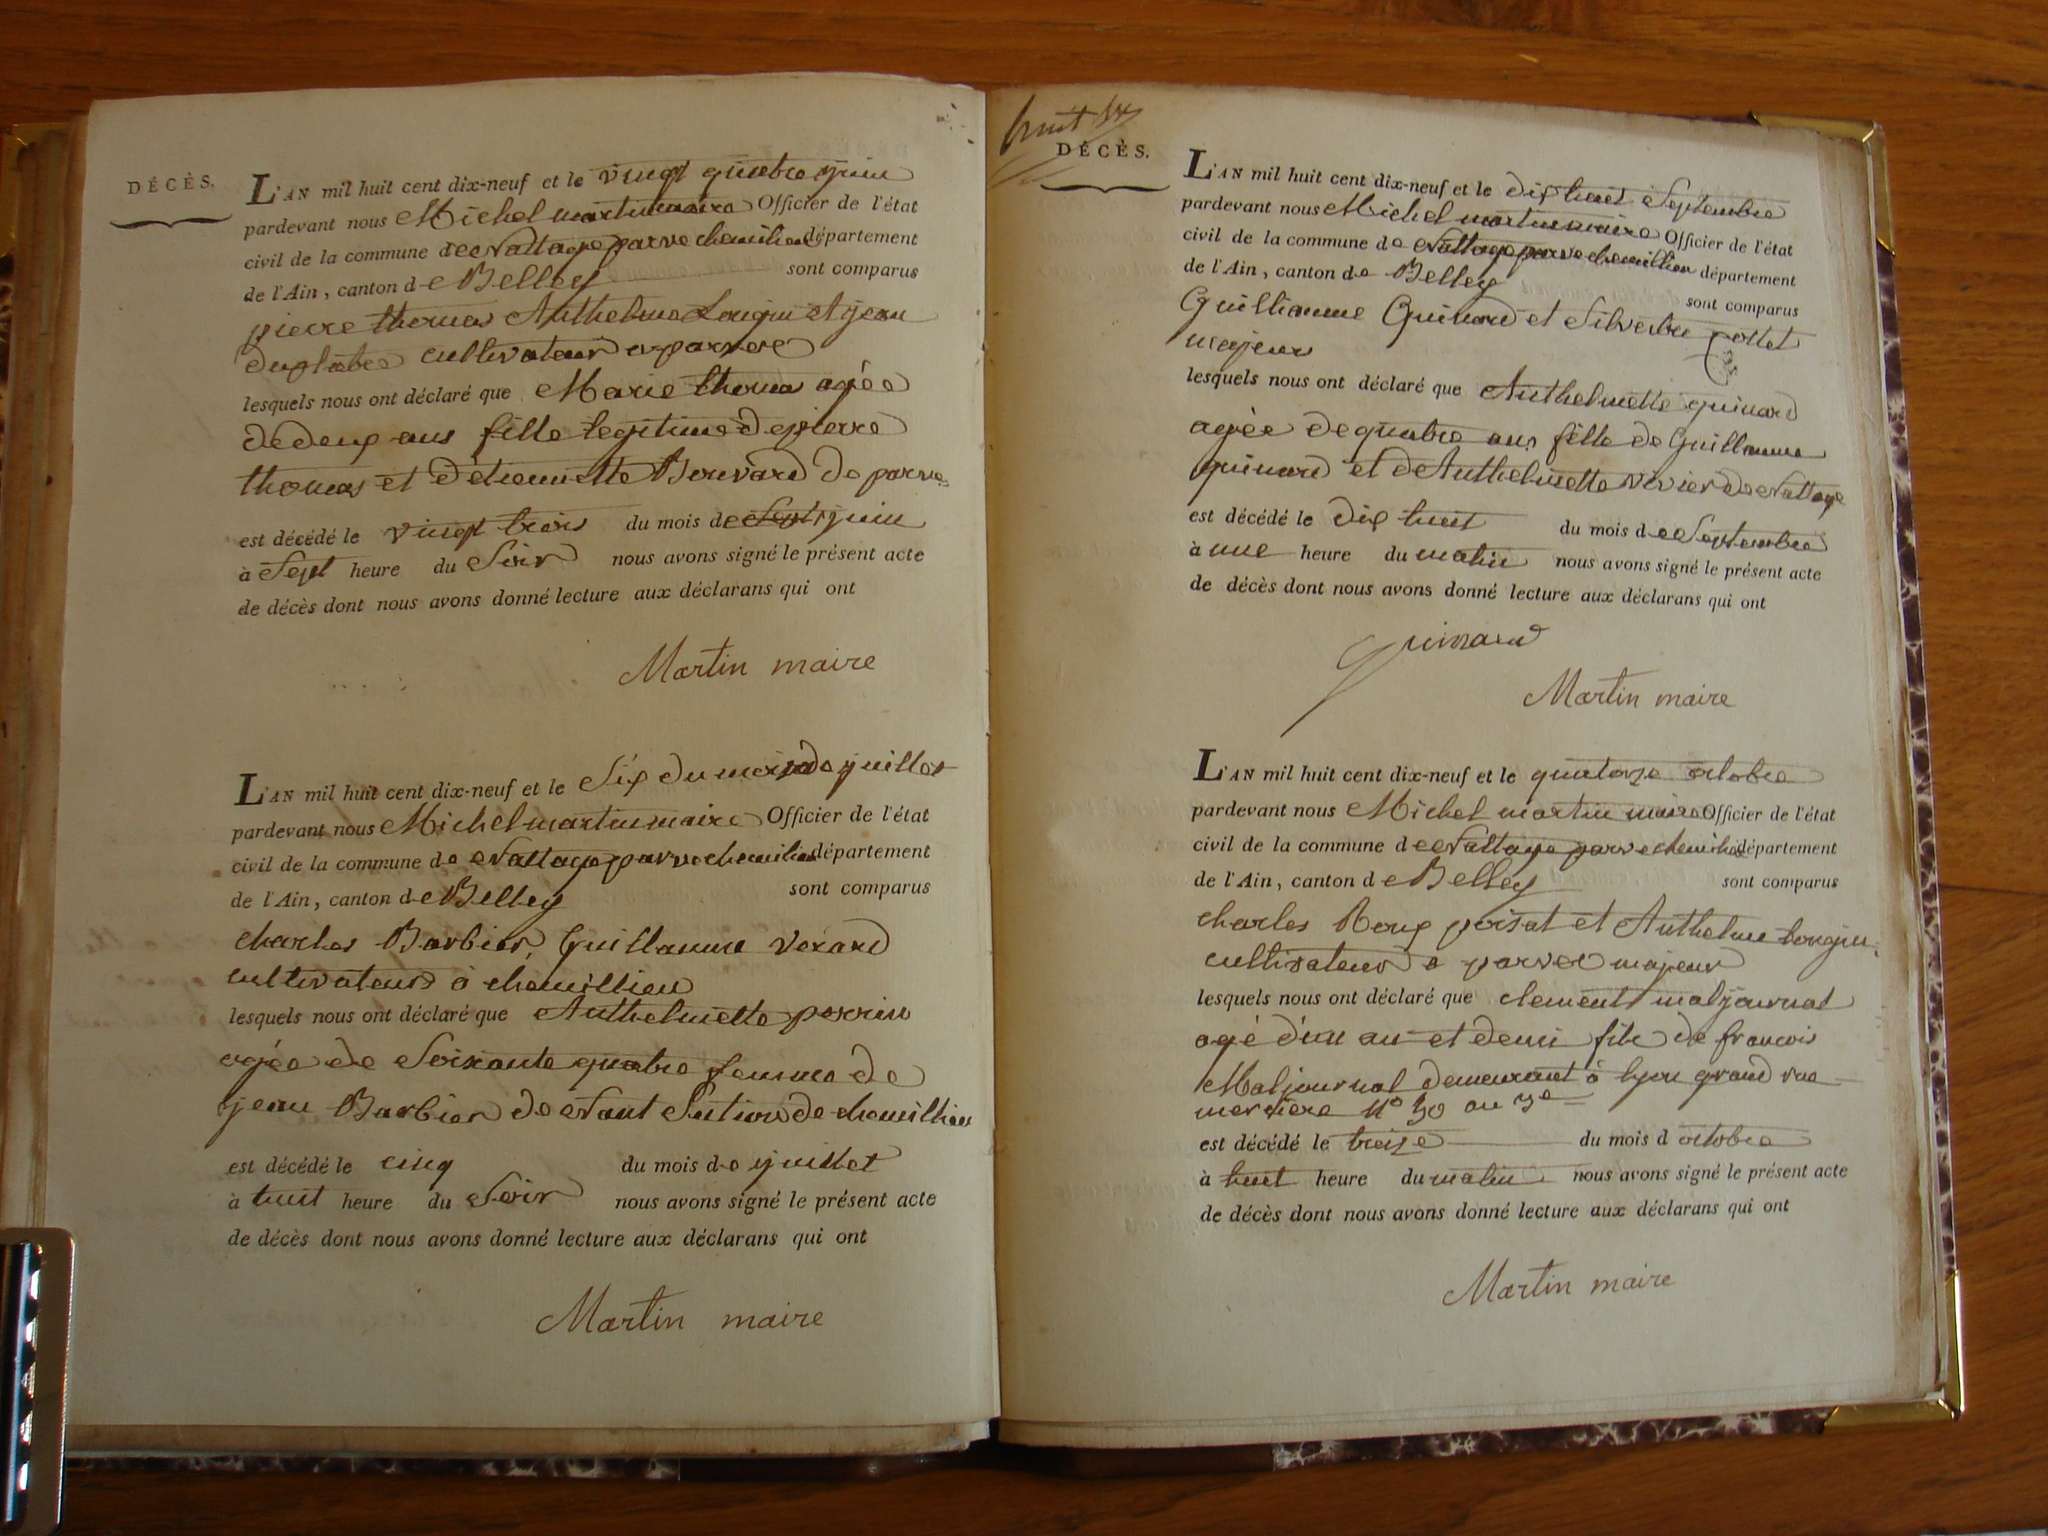 DÉCÈS.
L'AN mil huit cent dix-neuf et le vingt quatre juin
pardevant nous Michel martin maire Officier de l'état
civil de la commune de Nattage parve chemilieu département
de l'Ain, canton de Belley sont comparus
pierre thomas Anthelme Longin et jean
cultivateur a parvex
lesquels nous ont déclaré que Marie thomas agée
de deux ans fille legitime de pierre
thomas et d'étiennette Bouvard de parve
est décédé le vingt trois du mois de sept juin
à Sept heure du Soir nous avons signé le présent acte
de décès dont nous avons donné lecture aux déclarans qui ont
Martin maire
L'AN mil huit cent dix-neuf et le Six du mois de juillet
pardevant nous Michel martin maire Officier de l'état
civil de la commune de Nattage parve chemilieu département
de l'Ain, canton de Belley sont comparus
charles Barbier, Guillaume Verard
cultivateurs à chemillieu
lesquels nous ont déclaré que Anthelmette perrin
agée de Soixante quatre femme de
jean Barbier de Nant Section de chemillieu
est décédé le cinq du mois de juillet
à huit heure du Soir nous avons signé le présent acte
de décès dont nous avons donné lecture aux déclarans qui ont
Martin maire
huit
DÉCÈS.
L'AN mil huit cent dix-neuf et le dix huit Septembre
pardevant nous Michel martin maire Officier de l'état
civil de la commune de Nattage parve chemillieu département
de l'Ain, canton de Belley
sont comparus
Guilliaume Guinard et Silvestre pollet
majeur
lesquels nous ont déclaré que Anthelmette guinard
agée de quatre ans fille de Guillaume
guinard et de Anthelmette vivier de Nattage
est décédé le dix huit du mois de Septembre
à une heure du matin nous avons signé le présent acte
de décès dont nous avons donné lecture aux déclarans qui ont
Guinard
Martin maire
L'AN mil huit cent dix-neuf et le quatorze octobre
pardevant nous Michel martin maire Officier de l'état
civil de la commune de Nattage parve chemilieu département
de l'Ain, canton de Belley sont comparus
charles Roux poisat et Anthelme Longin
cultivateur a parvex majeur
lesquels nous ont déclaré que clement maljournal
agé d'un an et demi fils de francois
Maljournal demeurant à lyon grand rue
merciere No 50 au 3e
est décédé le treize du mois d octobre
à huit heure du matin nous avons signé le présent acte
de décès dont nous avons donné lecture aux déclarans qui ont
Martin maire